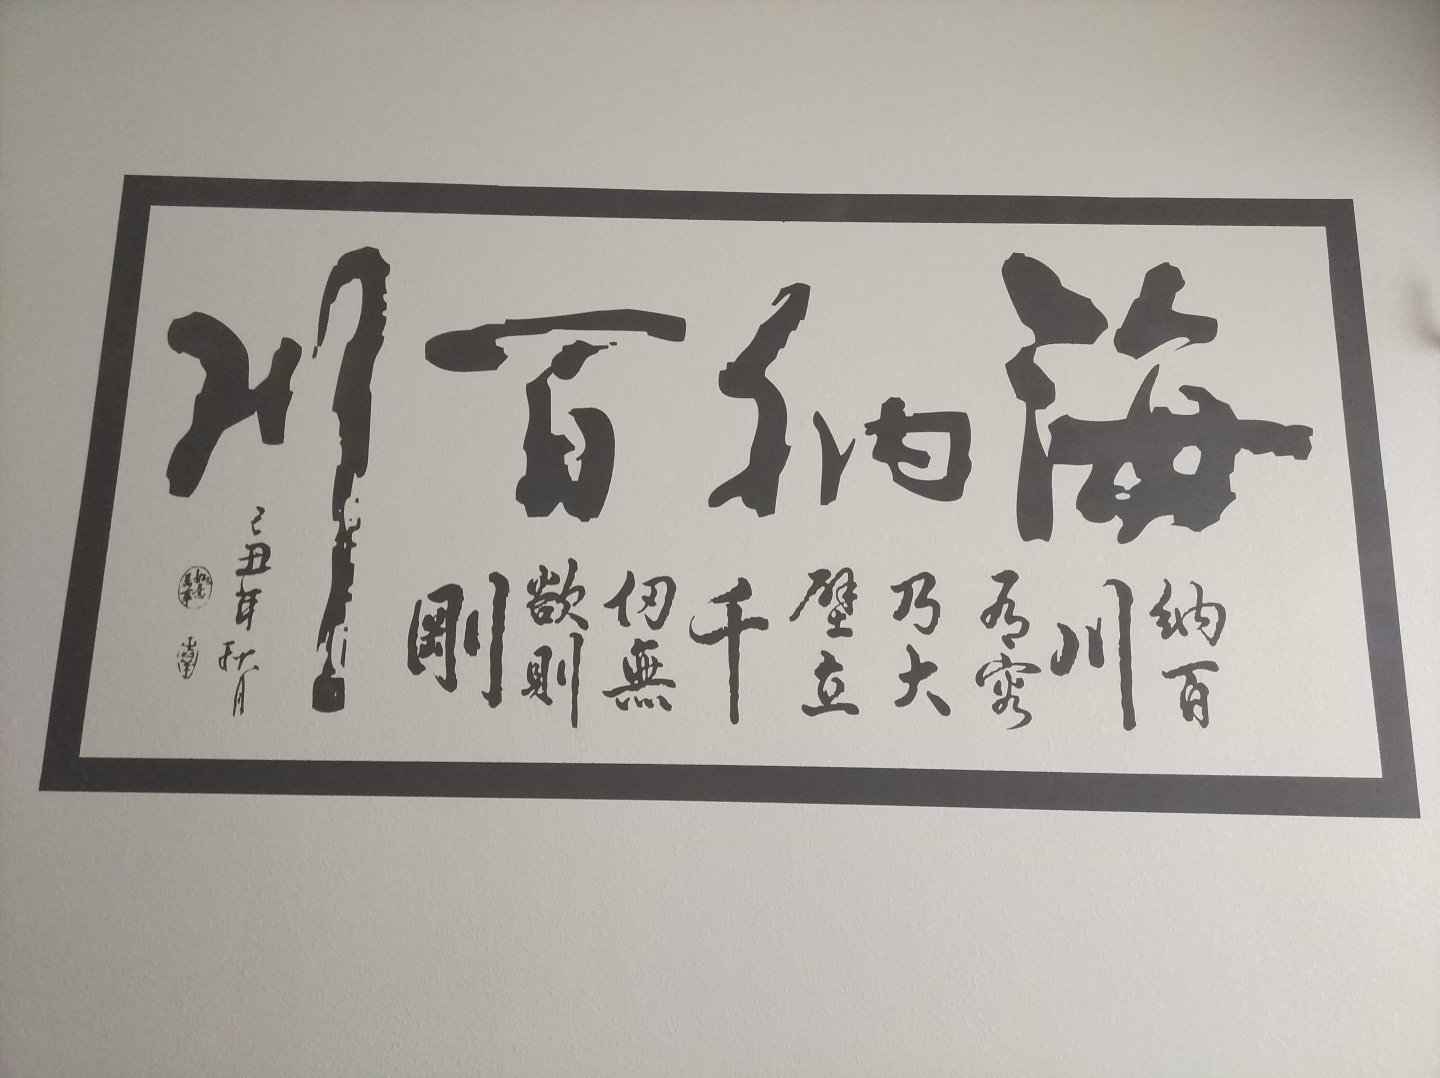 海納百川
納百
川
有容
乃大
壁立
千
仞無
欲則
剛
己丑年秋月